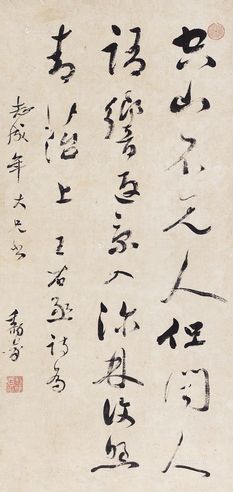 空山不見人但聞人
語響返景入深林復照
青苔上 王右丞詩為
志成年大兄書